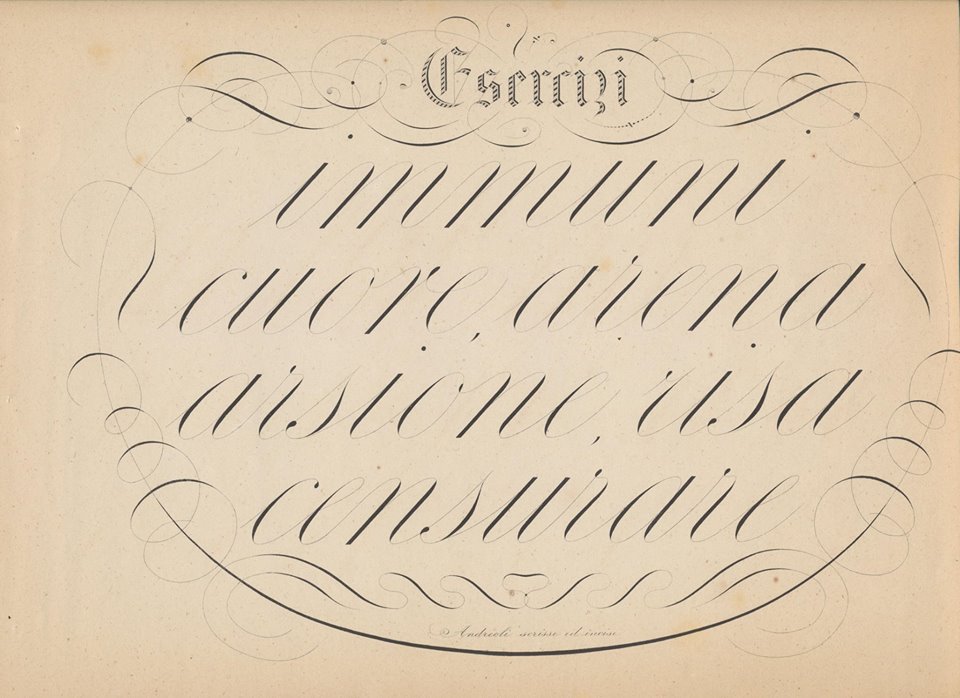 Esercizi
immuni
cuore, arena
arsione, risa
censurare
Andreoli scrisse ed incise